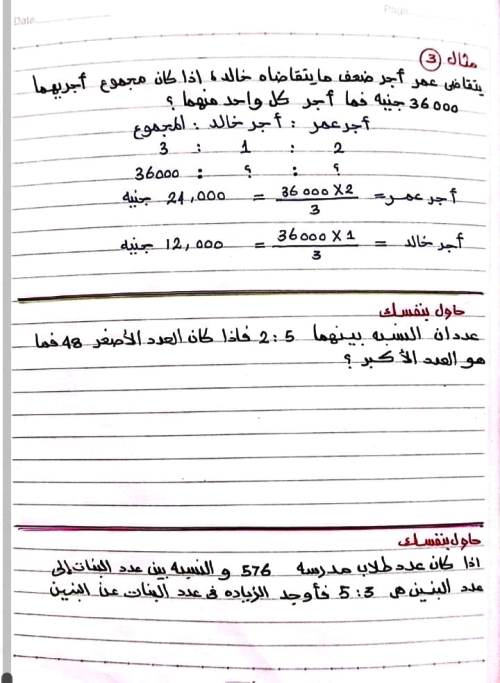 Date
Page
مثال 3
يتقاضى عمر أجر ضعف ما يتقاضاه خالد، اذا كان مجموع أجريهما
36000 جنيه فما أجر كل واحد منهما ؟
أجر عمر : أجر خالد : المجموع
2 : 1 : 3
؟ : ؟ : 36000
أجر عمر = 36000 X 2 / 3 = 24,000 جنيه
أجر خالد = 36000 X 1 / 3 = 12,000 جنيه
حاول بنفسك
عددان النسبه بينهما 5 : 2 فاذا كان العدد الأصغر 48 فما
هو العدد الأكبر ؟
حاول بنفسك
اذا كان عدد طلاب مدرسه 576 و النسبه بين عدد البنات إلى
عدد البنين هى 3 : 5 فأوجد الزياده فى عدد البنات عن البنين